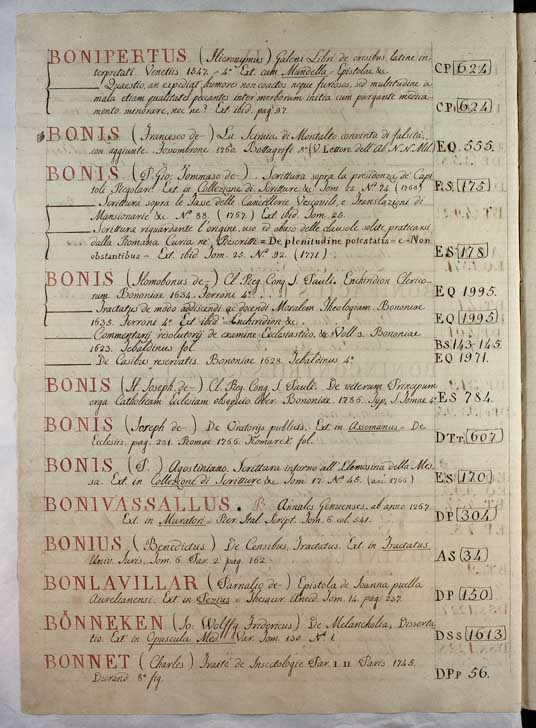 BONIPERTUS (Hieronymus) Galeni Libri de crisibus latine in-
terpretati. Venetiis 1547. 4.º Ext. cum Mundella = Epistolae &c. CP. 624
Quaestio, an expediat humores non coactos neque furiosos, sed multitudine a
mala etiam qualitate peccantes inter morborum initia cum purgante medica-
mento menorare, nec ne? Ext. ibid. pag. 97. CP. 624
BONIS (Francesco de=) La Scimia di Montalto convinta di falsità,
con aggiunte. Fossombrone 1760. Bottagrifi 8.º (V. Lettere dell'Ab. N. N. Mil.) EQ. 555.
BONIS (P. Gio. Tommaso de=). Scrittura sopra la presidenza de' Capi-
toli Regolari. Ext. in Collezione di Scritture &c. Tom. N.º 74. (1768) ES. 175
Scrittura sopra le Tasse delle Cancellerie Vescovili, e Traslazione di
Mansionarie &c. N.º 88. (1757.) Ext. ibid. Tom. 25.
Scrittura riguardante l'origine, uso ed abuso delle clausole solite praticarsi
dalla Romana Curia ne' Rescritti = De plenitudine potestatis = e = Non
obstantibus = Ext. ibid. Tom. 25. N.º 92. (1771) ES. 178
BONIS (Homobonus de=) Cl. Reg. Cong. S. Pauli. Enchiridion Clerico-
rum. Bononiae 1634. Ferroni 4.º EQ 1995.
Tractatus de modo addiscendi ac docendi Moralem Theologiam. Bononiae
1635. Ferroni 4.º Ext. ibid. Enchiridion &c. EQ 1995
Commentarij resolutorij de examine Ecclesiastico &c. Voll. 3. Bononiae
1623. Tebaldinus fol. BS 143-145.
De Casibus reservatis. Bononiae 1628. Tebaldinus 4.º EQ 1971.
BONIS (H. Joseph. de=) Cl. Reg. Cong. S. Pauli. De veterum Principum
erga Catholicam Ecclesiam obsequio liber. Bononiae 1786. Typ. S. Thomae 4.º ES 784.
BONIS (Joseph de=) De Oratorijs publicis. Ext. in Assemanus = De
Ecclesiis. pag. 231. Romae 1766. Komarek. fol. DTT. 607
BONIS (P.) Agostiniano. Scrittura intorno all'Elemosina della Mes-
sa. Ext. in Collezione di Scritture &c. Tom. 17. N.º 45. (an. 1766) ES 170
BONIVASSALLUS. Annales Genuenses, ab anno 1267.
Ext. in Muratori = Rer. Ital. Script. Tom. 6. col. 541. DP 304
BONIUS (Benedictus) De Censibus. Tractatus. Ext. in Tractatus
Univ. Juris. Tom. 6. Par. 2. pag. 162. AS 34
BONLAVILLAR (Parnalio de=) Epistola de Joanna puella
Aurelianensi. Ext. in Pezius = Thesaur. Anecd. Tom. 14. pag. 237. DP 150
BÖNNEKEN (Jo. Wolffg. Fridericus) De Melancholia, Disserta-
tio. Ext. in Opuscula Med. Var. Tom. 130. N.º 1. DSS 1613
BONNET (Charles) Traité de Insectologie Par. I. II. Paris 1745.
Durand 8.º fig. DPP 56.